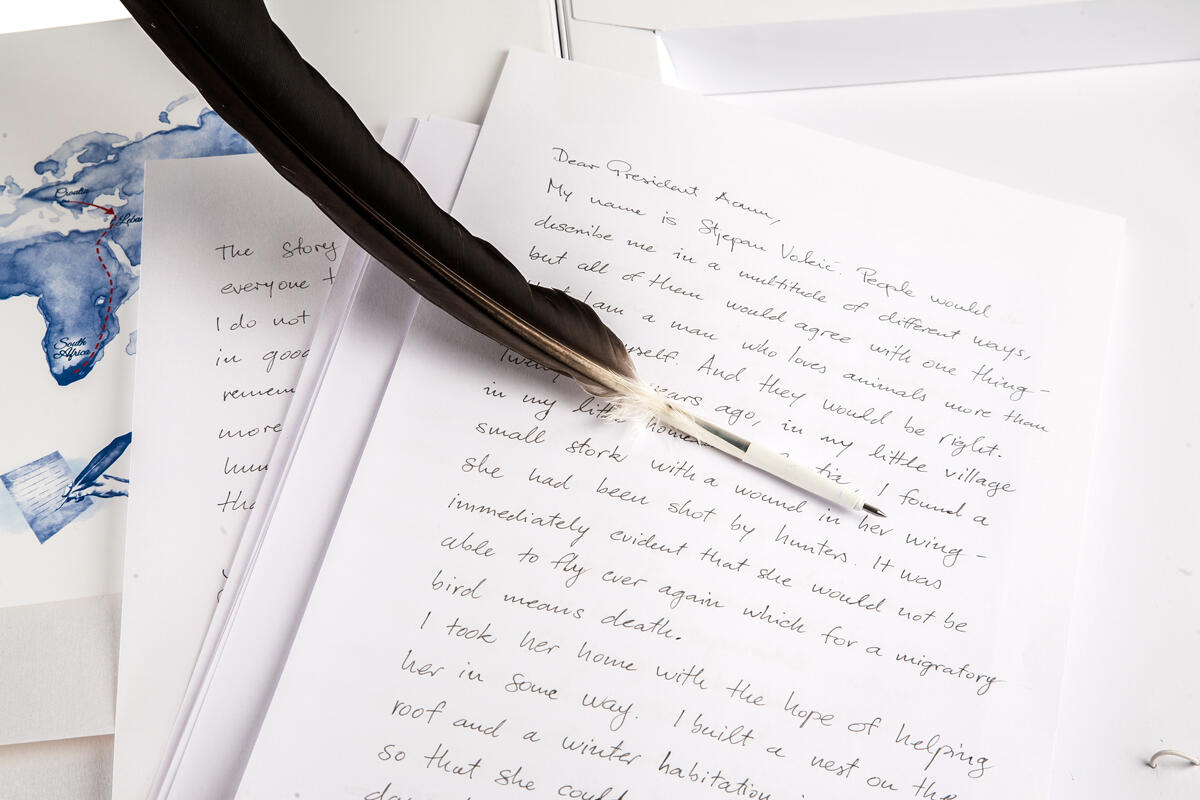 Croatia
Leban
South
Africa
The story
everyone t
I do not
in good
remem
more
hum
tha
Dear President Aoun,
My name is Stjepan Vokić. People would
describe me in a multitude of different ways,
but all of them would agree with one thing -
I am a man who loves animals more than
yself. And they would be right.
Twenty years ago, in my little village
in my little home tia, I found a
small stork with a wound in her wing -
she had been shot by hunters. It was
immediately evident that she would not be
able to fly ever again which for a migratory
bird means death.
I took her home with the hope of helping
her in some way. I built a nest on the
roof and a winter habitation
so that she could